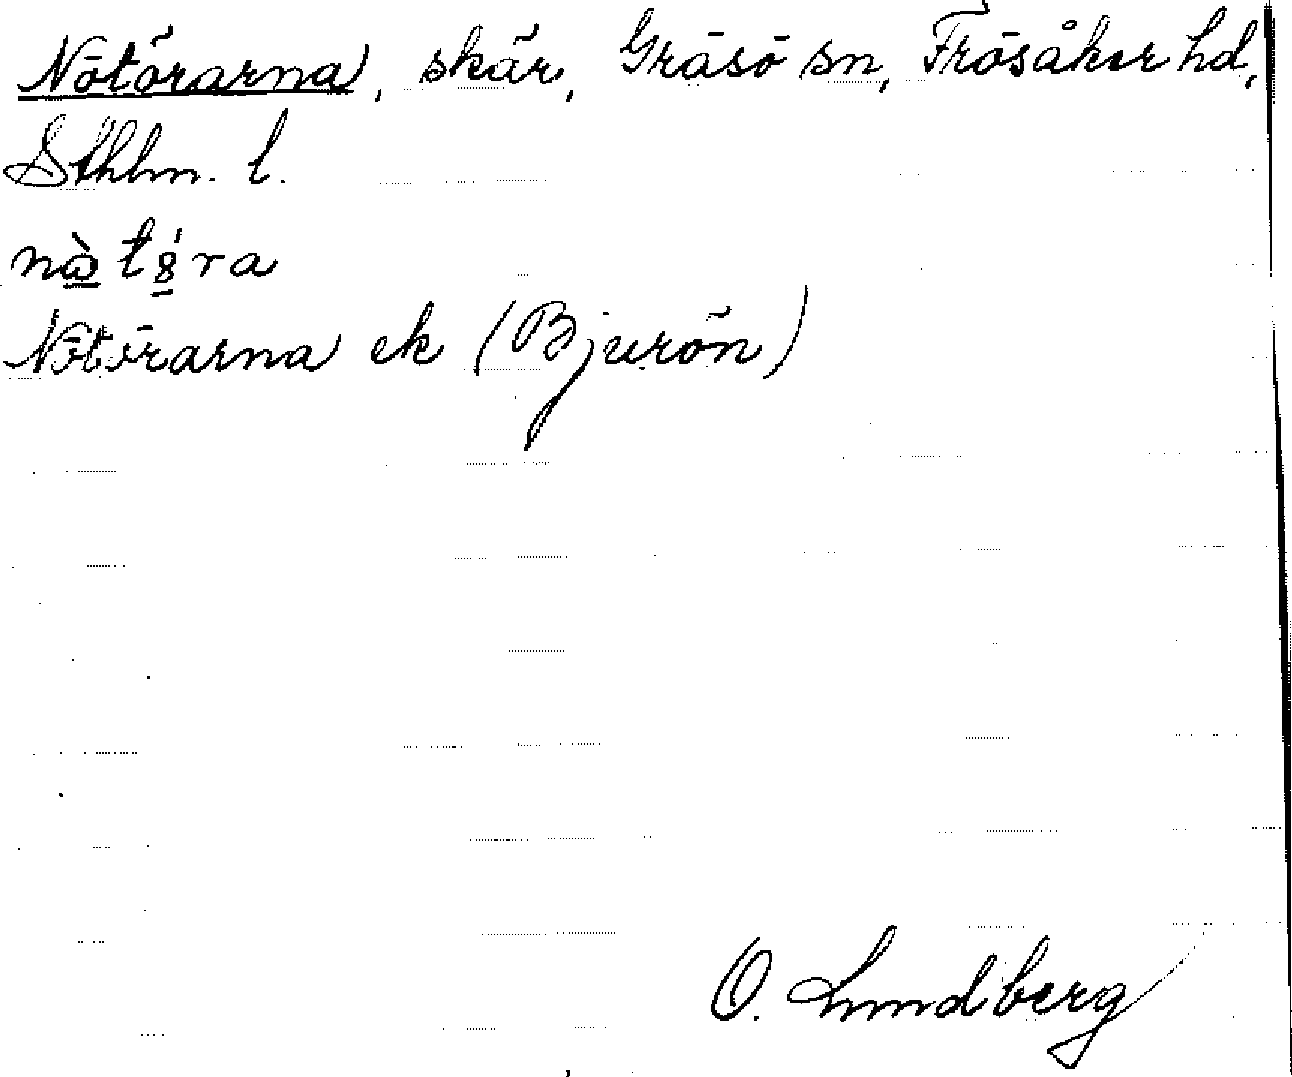 Nötörarna, skär, Gräsö sn, Frösåker hd,
Sthlm. l.
Nötörarna ek (Bjurön)
O. Lundberg